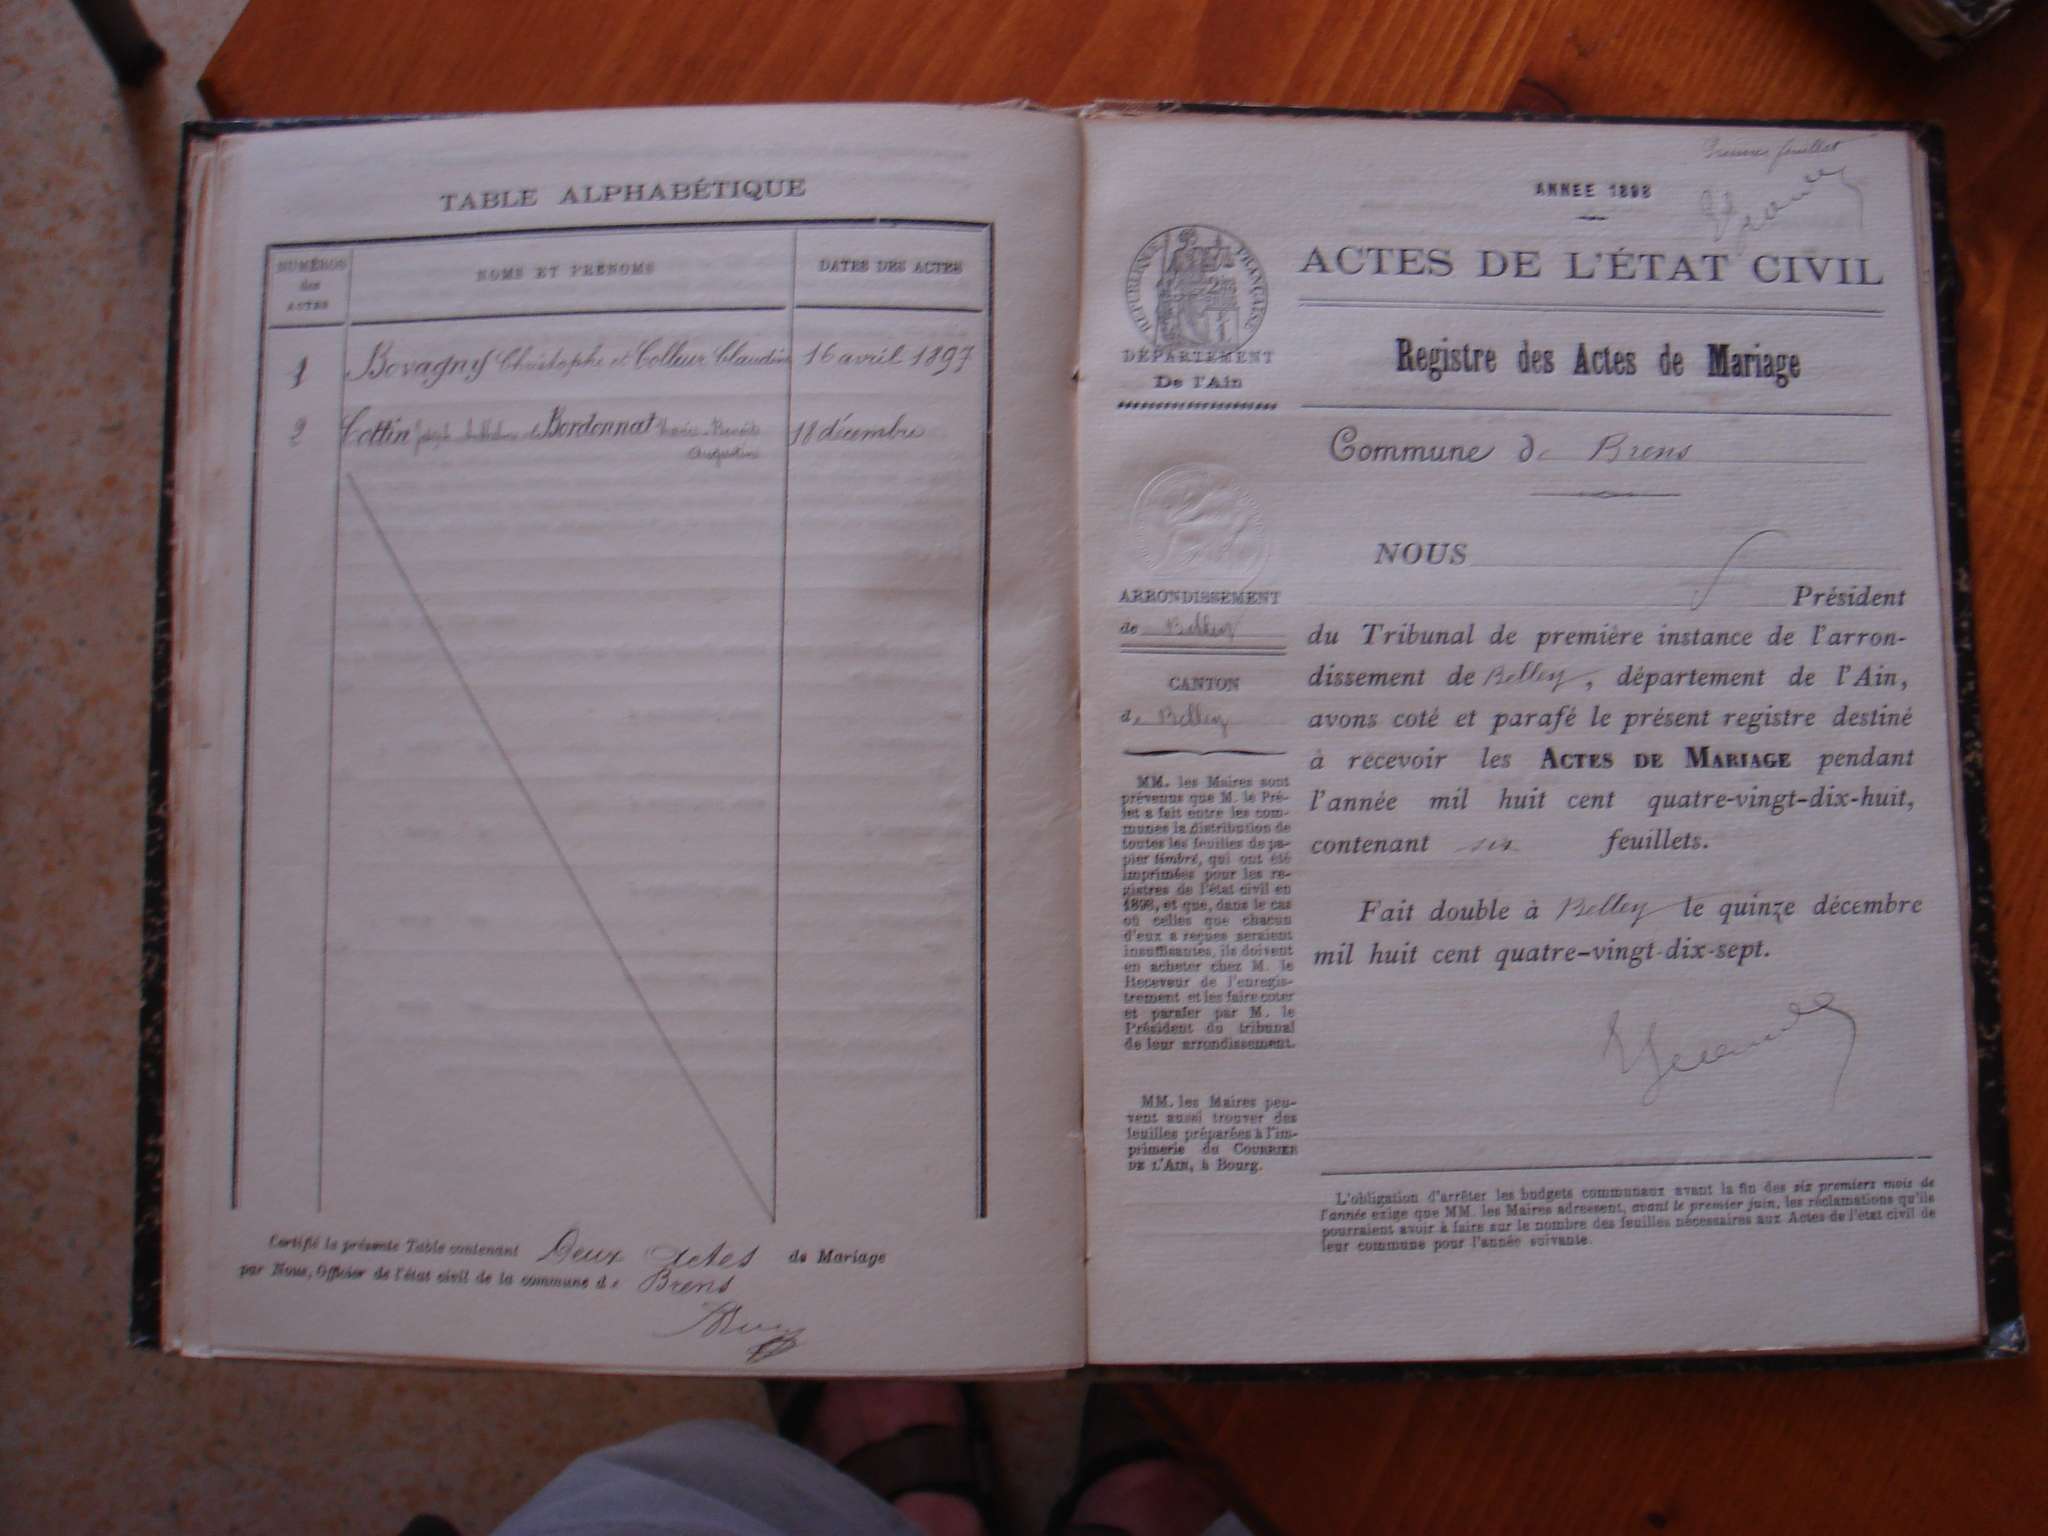 TABLE ALPHABÉTIQUE
NUMÉROS
des
ACTES
NOMS ET PRÉNOMS
DATES DES ACTES
1 Bovagny Christophe et Colleur Claudine 16 avril 1897
2 Cottin Joseph et Bordonnat Marie-Benoite 18 décembre
Augustine
Certifié la présente Table contenant Deux actes de Mariage
par Nous, Officier de l'état civil de la commune de Brens
Premier feuillet
ANNEE 1898
RÉPUBLIQUE FRANÇAISE
ACTES DE L'ÉTAT CIVIL
DÉPARTEMENT
De l'Ain
Registre des Actes de Mariage
Commune de Brens
ARRONDISSEMENT
de Belley
CANTON
de Belley
MM. les Maires sont
prévenus que M. le Pré-
fet a fait entre les com-
munes la distribution de
toutes les feuilles de pa-
pier timbré, qui ont été
imprimées pour les re-
gistres de l'état civil en
1898, et que, dans le cas
où celles que chacun
d'eux a reçues seraient
insuffisantes, ils doivent
en acheter chez M. le
Receveur de l'enregis-
trement et les faire coter
et parafer par M. le
Président du tribunal
de leur arrondissement.
MM. les Maires peu-
vent aussi trouver des
feuilles préparées à l'im-
primerie du COURRIER
DE L'AIN, à Bourg.
NOUS
Président
du Tribunal de première instance de l'arron-
dissement de Belley, département de l'Ain,
avons coté et parafé le présent registre destiné
à recevoir les ACTES DE MARIAGE pendant
l'année mil huit cent quatre-vingt-dix-huit,
contenant six feuillets.
Fait double à Belley le quinze décembre
mil huit cent quatre-vingt-dix-sept.
L'obligation d'arrêter les budgets communaux avant la fin des six premiers mois de
l'année exige que MM. les Maires adressent, avant le premier juin, les réclamations qu'ils
pourraient avoir à faire sur le nombre des feuilles nécessaires aux Actes de l'état civil de
leur commune pour l'année suivante.